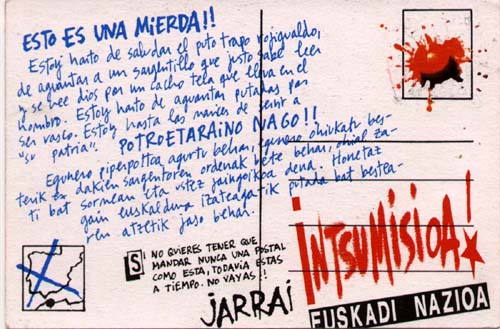 ESTO ES UNA MIERDA!!
Estoy harto de saludar el puto trapo rojigualdo,
de aguantar a un sargentillo que justo sabe leer
y se cree dios por un cacho tela que lleva en el
hombro. Estoy harto de aguantar putadas por
ser vasco. Estoy hasta las narices de servir a
"su patria".
POTROETARAINO NAGO!!
Egunero piperpottoa agurtu behar, egunero oihukatu bes-
terik ez dakien sargentoren ordenak bete behar, ohial za-
ti bat sorniean eta ustez jaingoikoa dena. Honetaz
gain euskalduna izateagatik putada bat bestea-
ren atzetik jaso behar.
SI NO QUIERES TENER QUE
MANDAR NUNCA UNA POSTAL
COMO ESTA, TODAVIA ESTAS
A TIEMPO. NO VAYAS!!
JARRAI
INTSUMISIOA!
EUSKADI NAZIOA